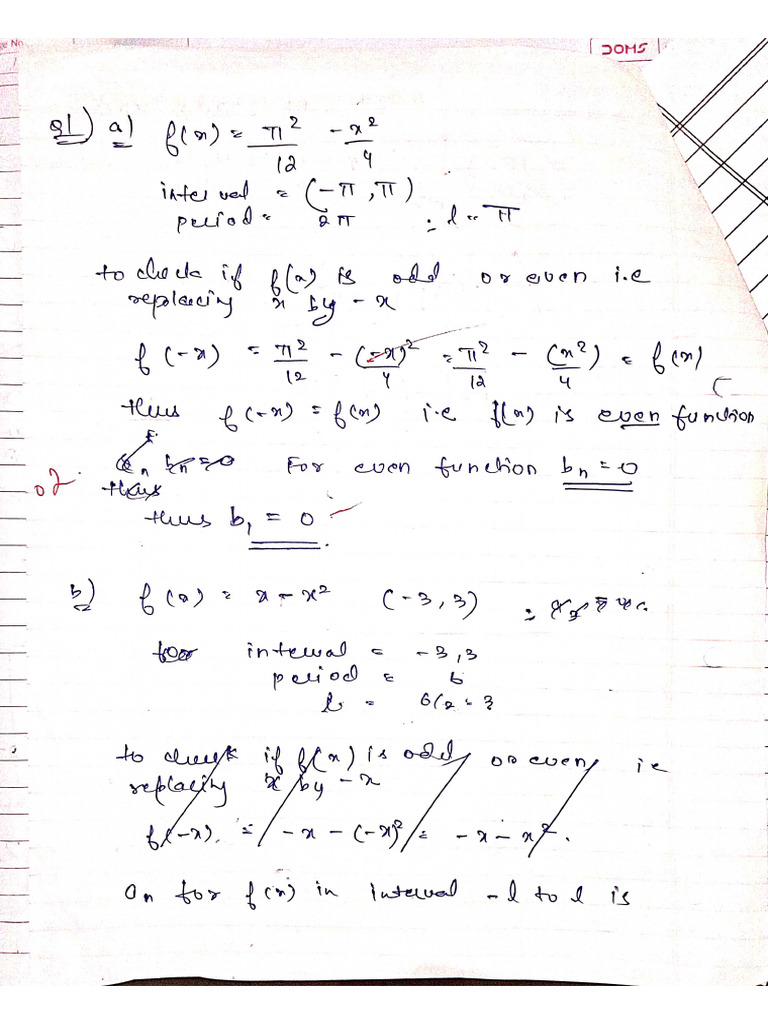 ge No
JOMS
Q1) a) f(x) = π²/12 - x²/4
interval = (-π, π)
period = 2π ∴ l = π
to check if f(x) is odd or even i.e
replacing x by -x
f(-x) = π²/12 - (-x)²/4 = π²/12 - (x²)/4 = f(x)
thus f(-x) = f(x) i.e f(x) is even function
bn = 0 For even function bn = 0
02 thus
thus b₁ = 0
b) f(x) = x - x² (-3, 3)
for interval = -3, 3
period = 6
l = 6/2 = 3
to check if f(x) is odd or even ie
replacing x by -x
f(-x) = -x - (-x)² = -x - x².
an for f(x) in interval -l to l is